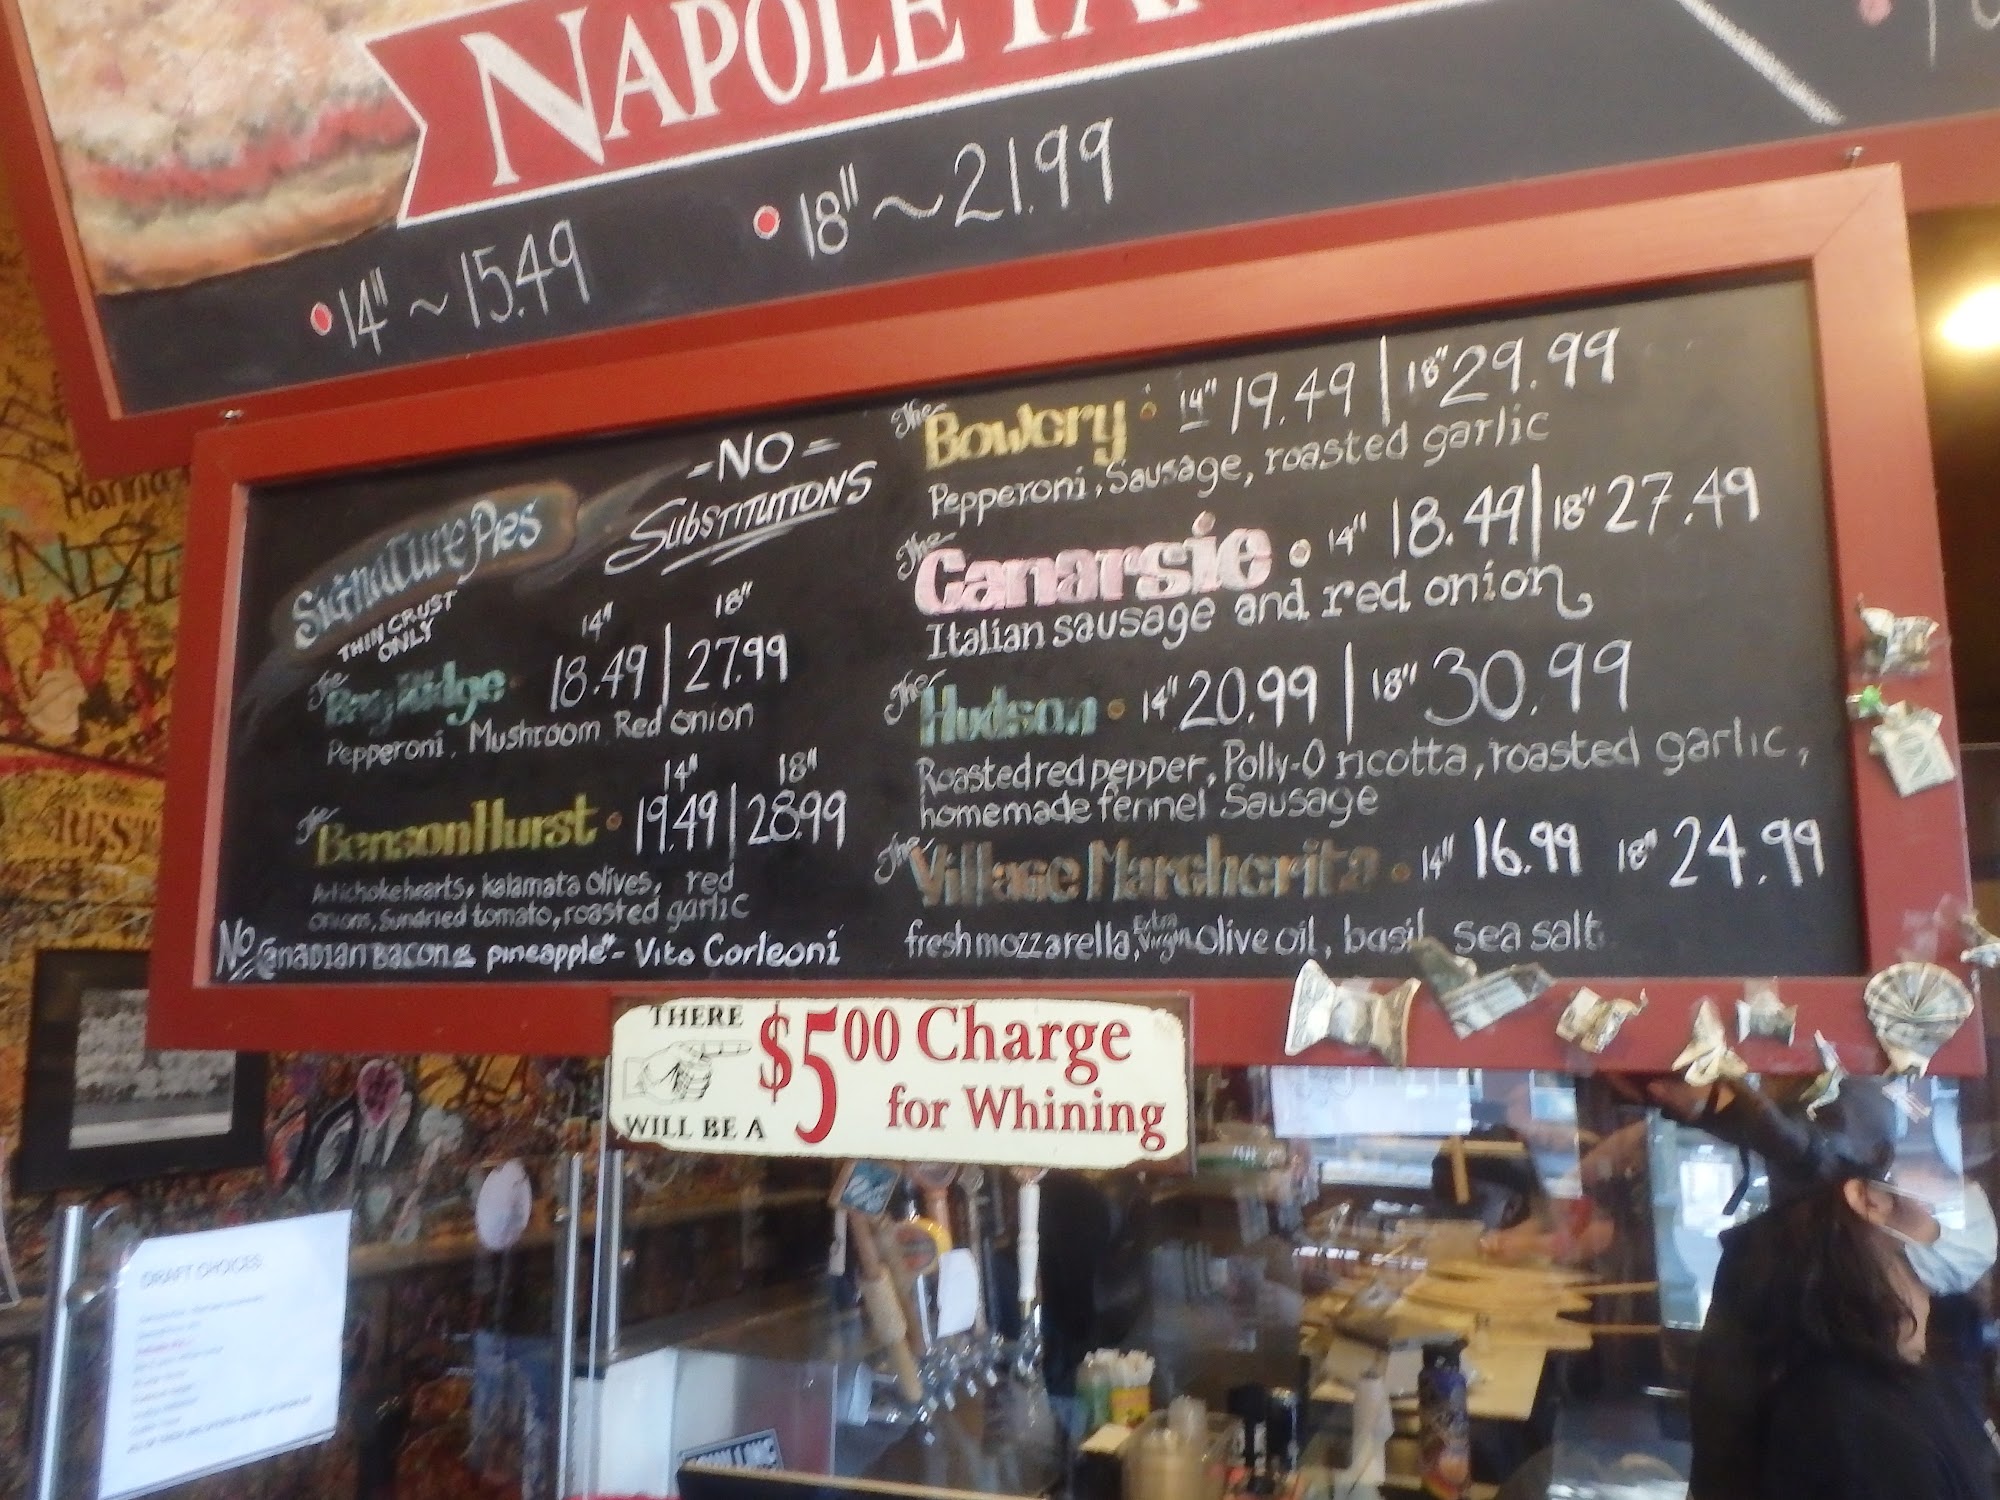 14" ~ 15.49
18" ~ 21.99
Signature Pies
THIN CRUST
ONLY
-NO-
SUBSTITUTIONS
14" 18"
The Bay Ridge 18.49 | 27.99
Pepperoni, Mushroom Red onion
14" 18"
The BensonHurst • 19.49 | 28.99
Artichoke hearts, kalamata olives, red
onions, Sundried tomato, roasted garlic
No Canadian Bacon & pineapple" - Vito Corleoni
The Bowery • 14" 19.49 | 18" 29.99
Pepperoni, Sausage, roasted garlic
The Canarsie • 14" 18.49 | 18" 27.49
Italian sausage and red onion
The Hudson • 14" 20.99 | 18" 30.99
Roasted red pepper, Polly-O ricotta, roasted garlic,
homemade fennel Sausage
The Village Margherita • 14" 16.99 18" 24.99
fresh mozzarella, Extra Virgin olive oil, basil, sea salt
THERE
WILL BE A
$5.00 Charge
for Whining
DRAFT CHOICES